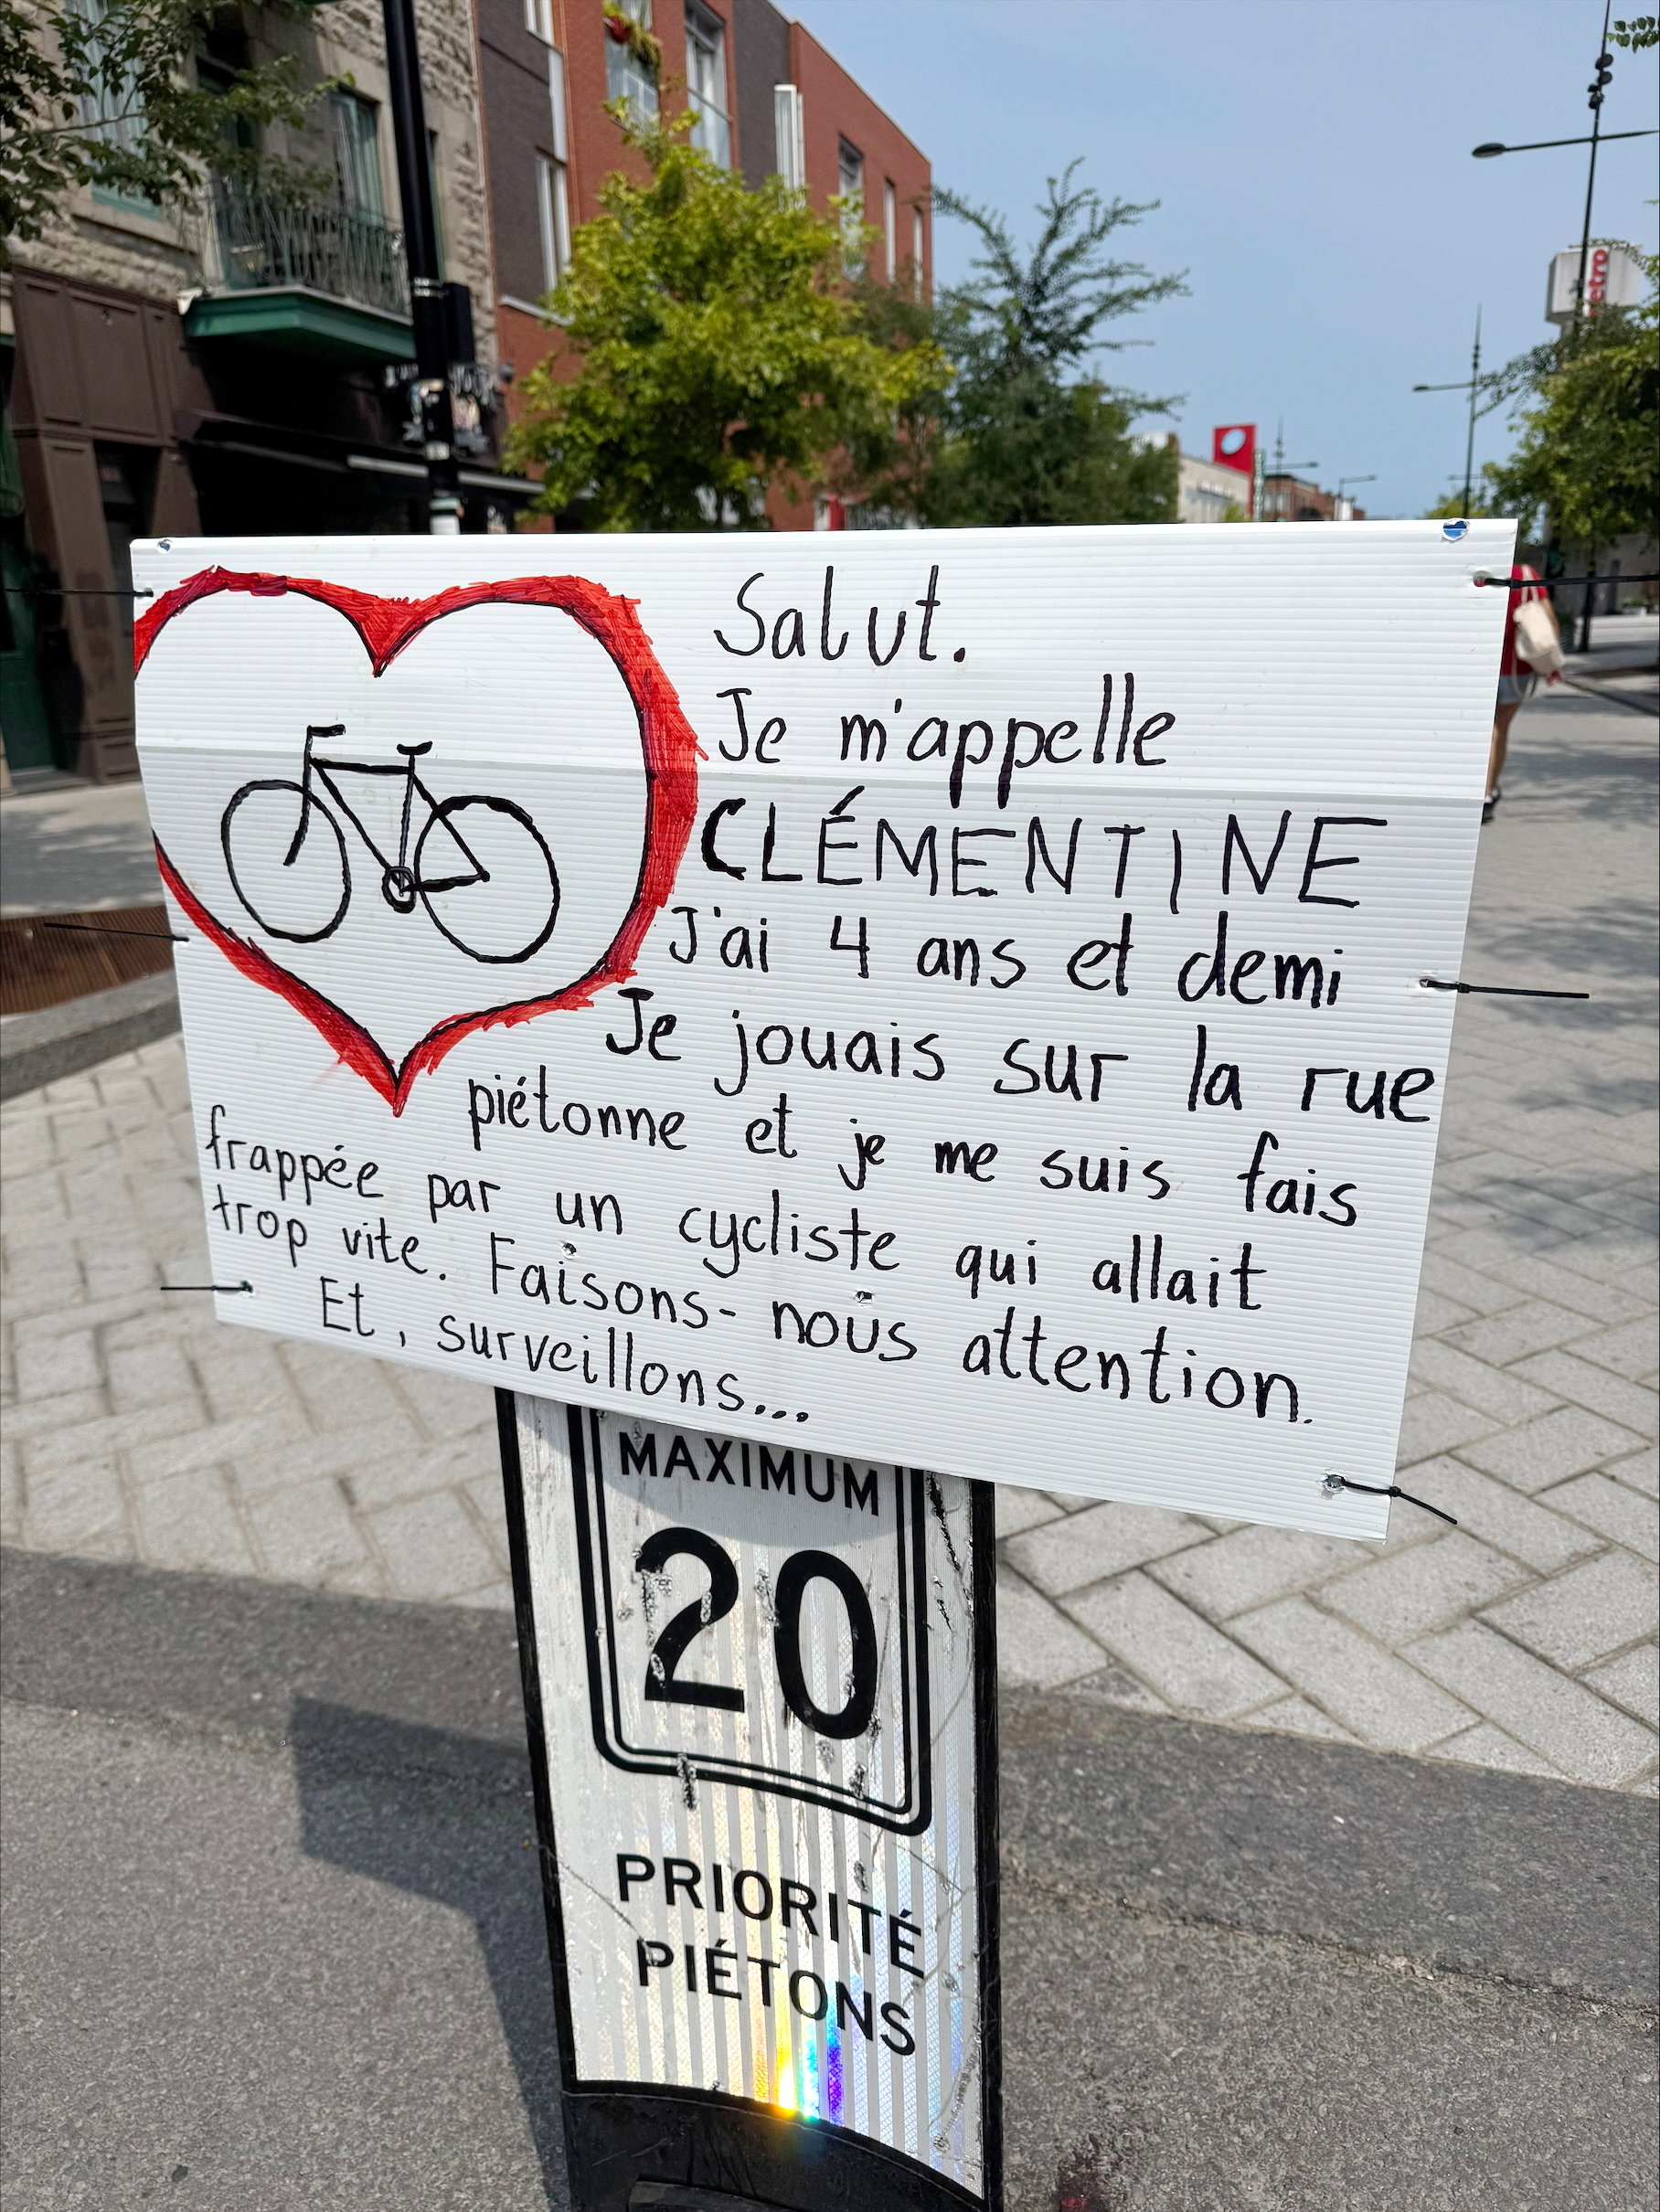 Salut.
Je m'appelle
CLÉMENTINE
J'ai 4 ans et demi
Je jouais sur la rue
piétonne et je me suis fais
frappée par un cycliste qui allait
trop vite. Faisons-nous attention.
Et, surveillons...
MAXIMUM
20
PRIORITÉ
PIÉTONS